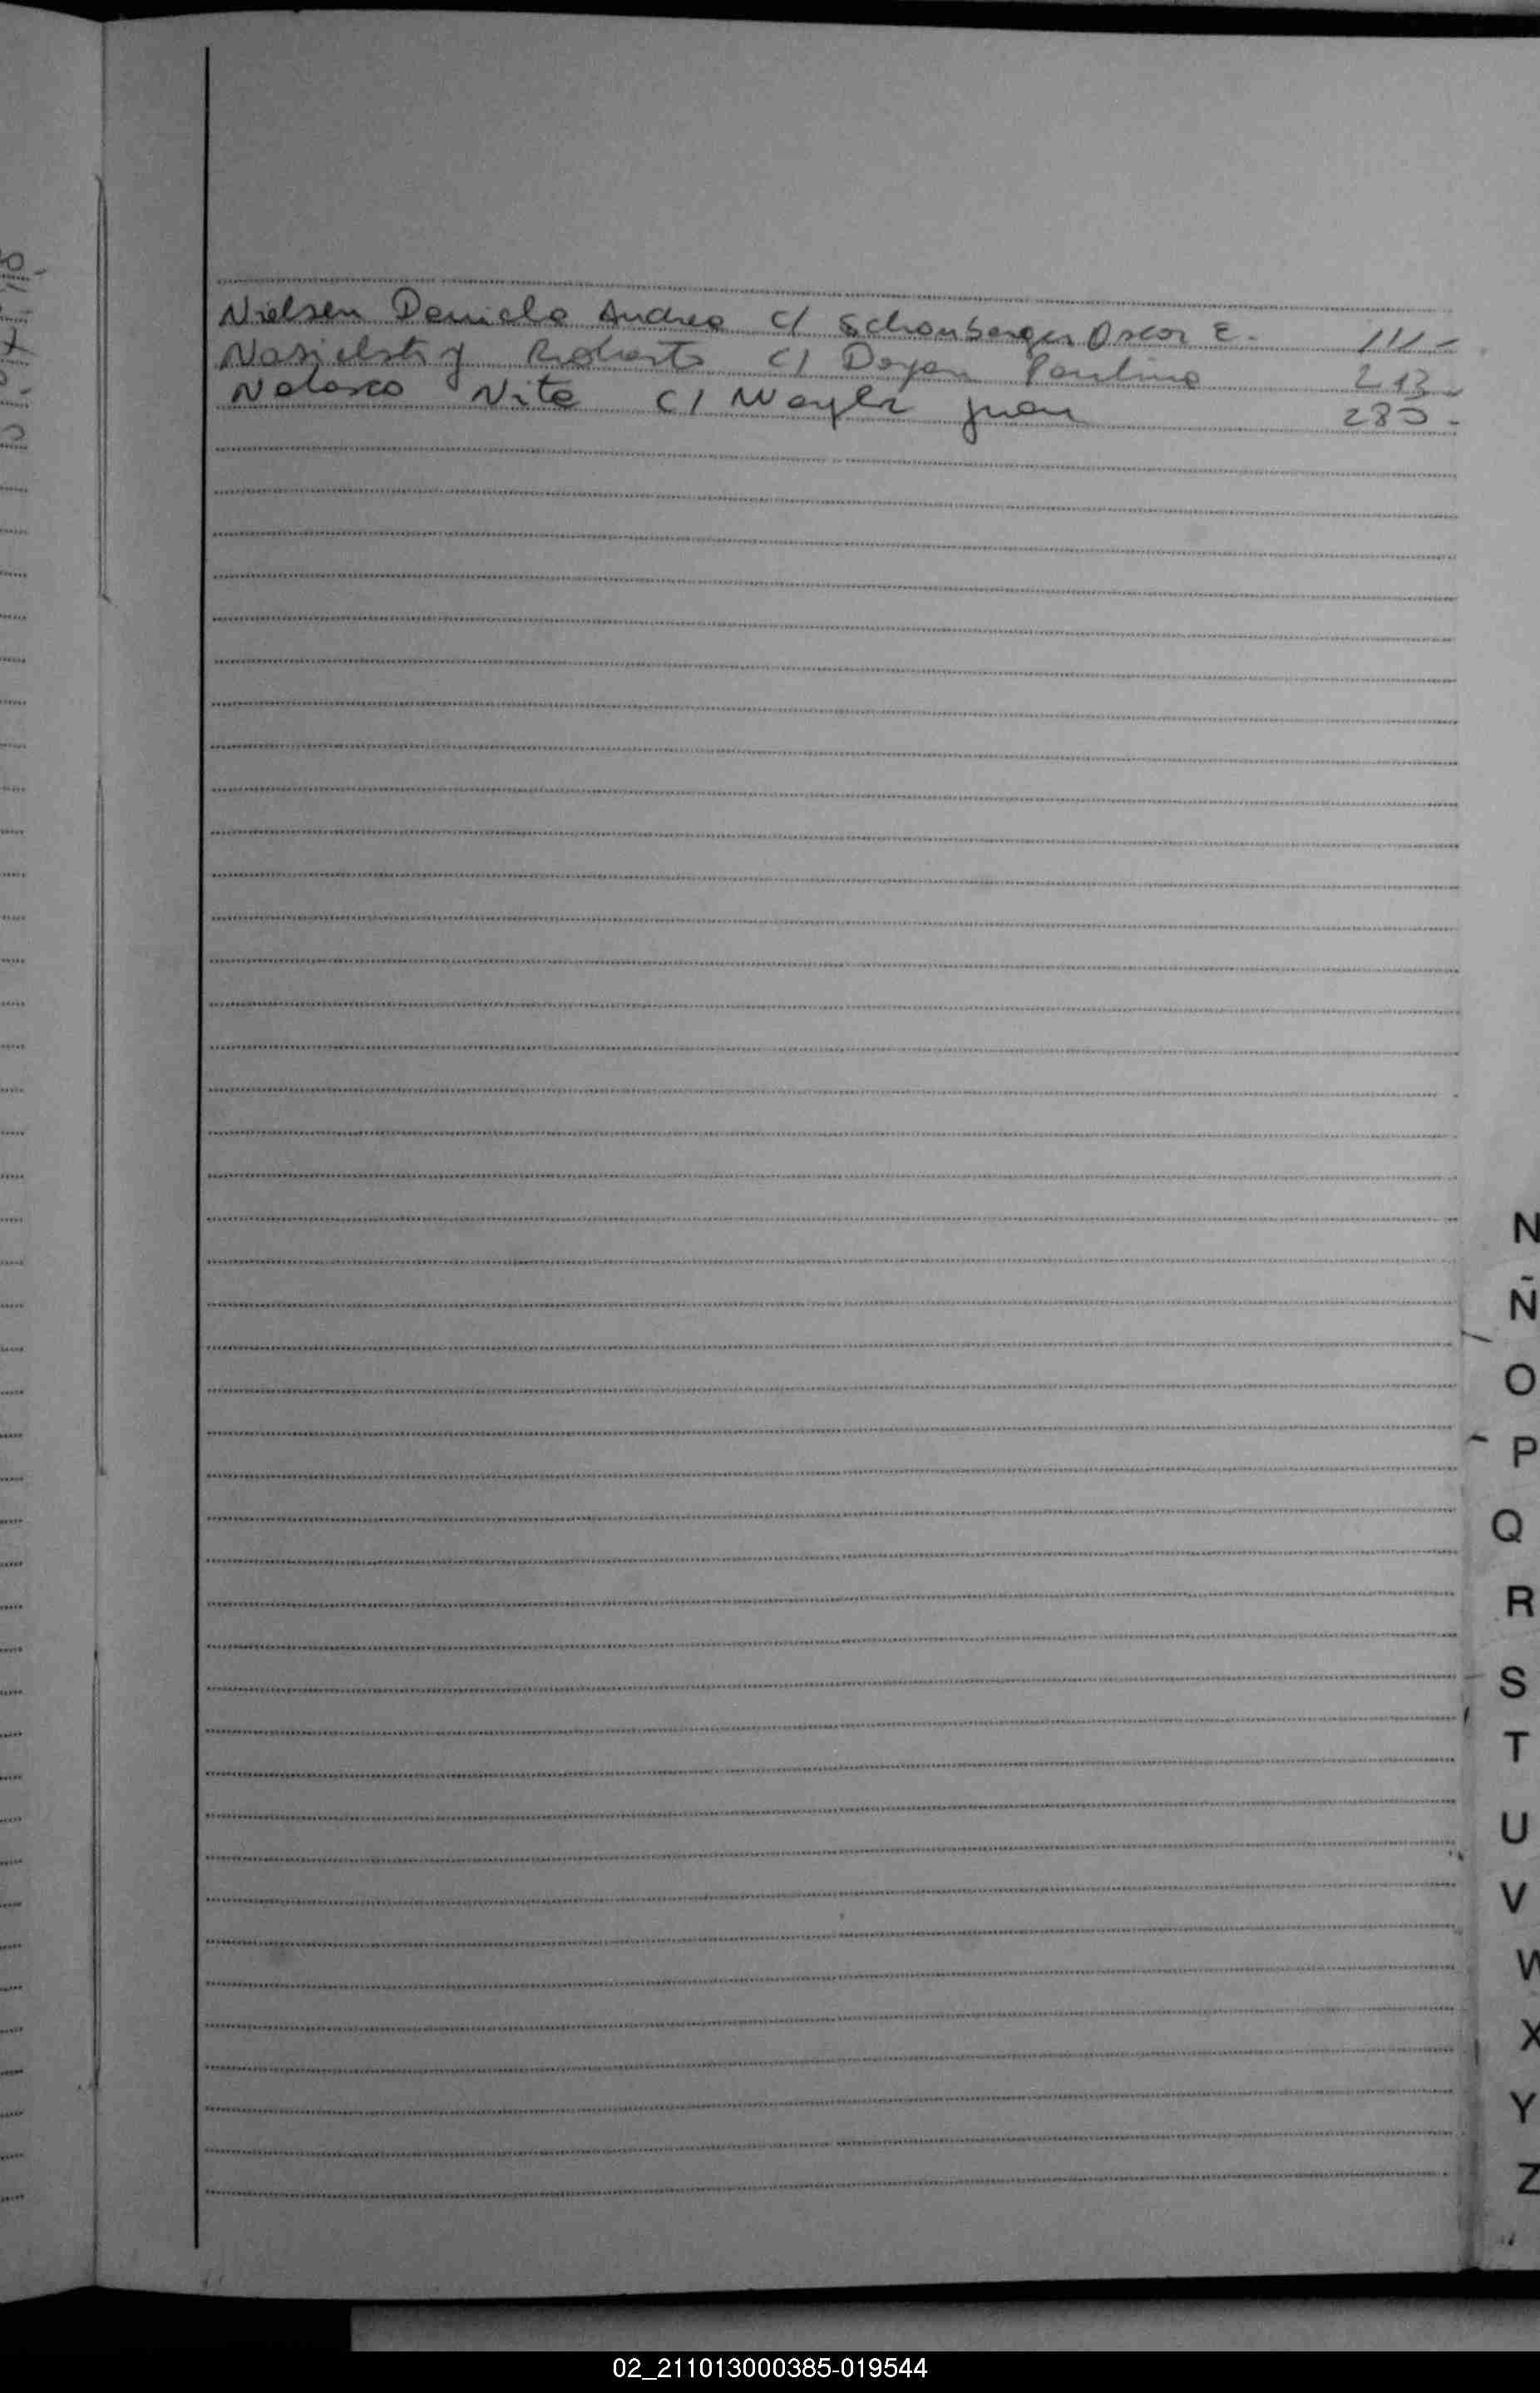 Nielsen Daniela Andrea c/ Schonberger Oscar E. 111-
Nasielsky Roberto c/ Dayan Paulina 213-
Nolasco Nita c/ Wayler Juan 285-
N
Ñ
O
P
Q
R
S
T
U
V
W
X
Y
Z
02_211013000385-019544